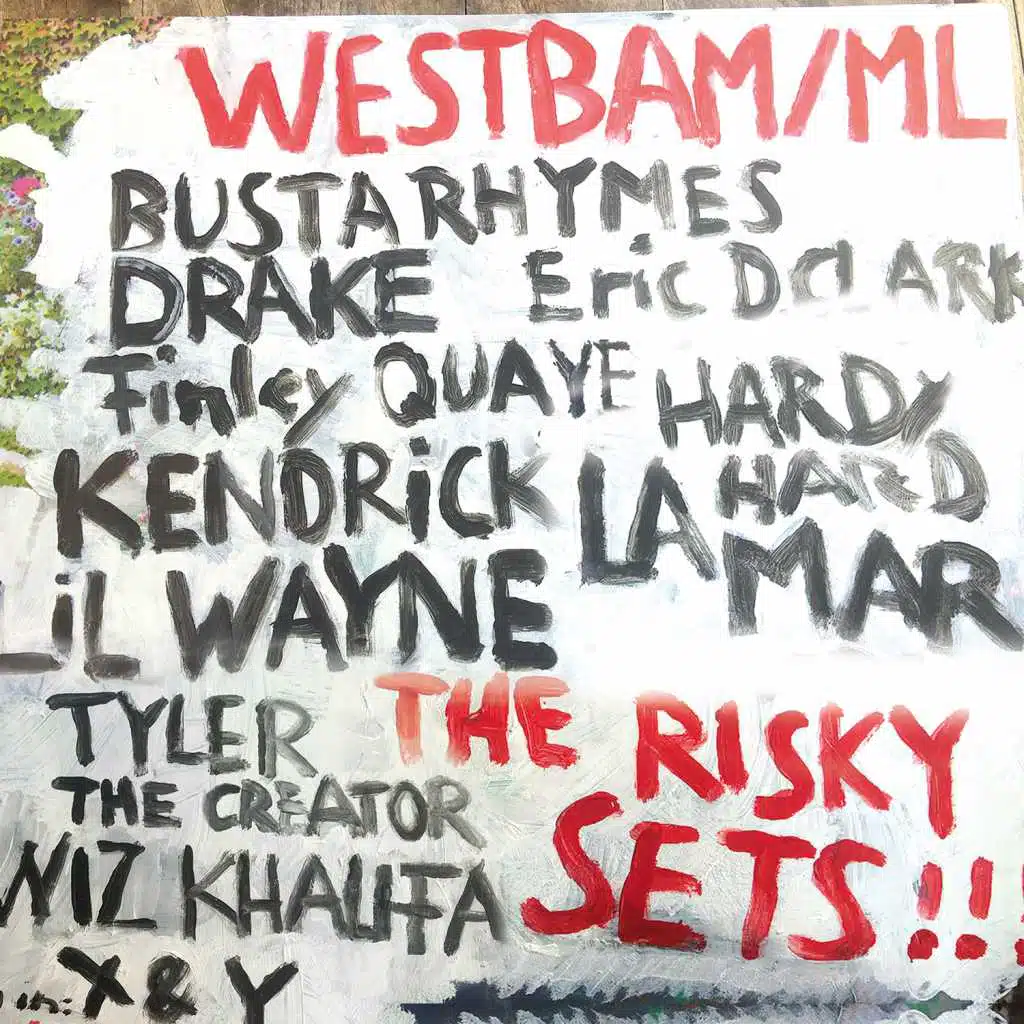 WESTBAM/ML
BUSTA RHYMES
DRAKE Eric D CLARK
Finley QUAYE HARDY
HARD
KENDRICK LAMAR
LiL WAYNE
TYLER THE CREATOR
WIZ KHALIFA
THE RISKY
SETS!!!
in: X & Y